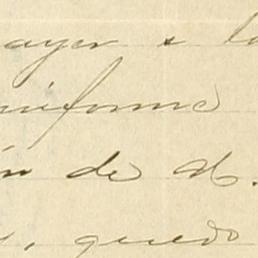 ayer s la
uniforme
ón de A.
, quedo